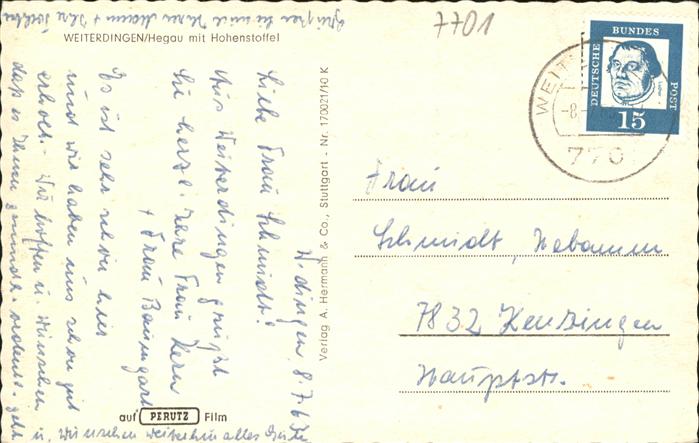 7701
WEITERDINGEN/Hegau mit Hohenstoffel
W.dingen, 8.7.6
Liebe Frau Schmidt!
Aus Weiterdingen grüßt
Sie herzl. Ihre Frau Kern
+ Frau Baumgart
Es ist sehr schön hier
und wir haben uns schon gut
erholt. Wir hoffen u. wünschen
daß es Ihnen gesundh. ordentl. geht
u. wünschen weiterhin alles Gute
Grüßen Sie mir Ihren Mann + Ihre
auf PERUTZ Film
Verlag A. Hermann & Co., Stuttgart - Nr. 173021/10 K
DEUTSCHE
BUNDES
POST
15
WEIT
-8.
770
Frau
Schmidt, Hebamme
7832 Kenzingen
Hauptstr.